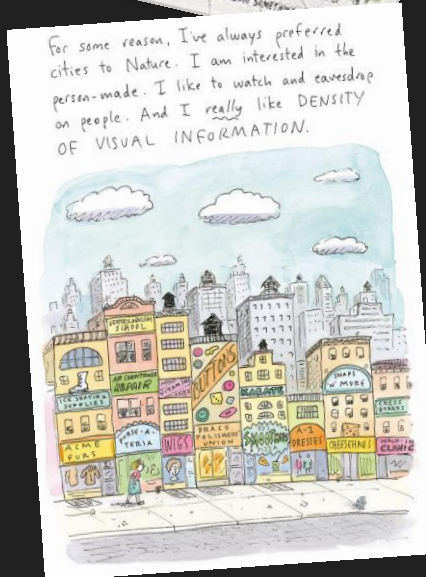 For some reason, I've always preferred
cities to Nature. I am interested in the
person-made. I like to watch and eavesdrop
on people. And I really like DENSITY
OF VISUAL INFORMATION.
VENTRILOQUISM
SCHOOL
AIR CONDITIONER
REPAIR
VITAMINS
BUTTONS
KARATE
SNAPS
N' MORE
ICE SKATING
SUPPLIES
CHESS
BOARDS
PURSE-A-
TERIA
WIGS
BRASS
POLISHERS
UNION
SMOOTHIES
A-1
DRESSES
CHEESEHAUS
WALK-IN
CLINIC
ACME
FURS